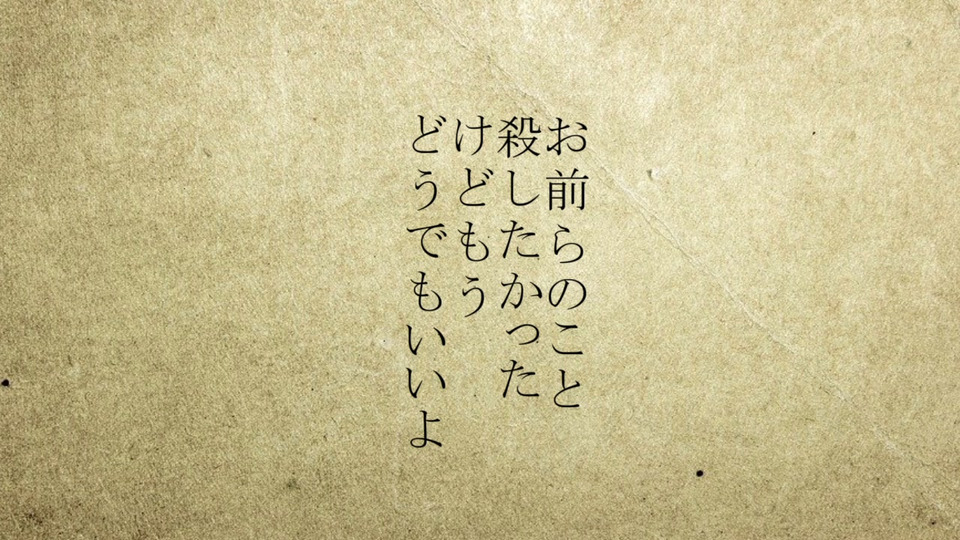 お前らのこと
殺したかった
けどもう
どうでもいいよ